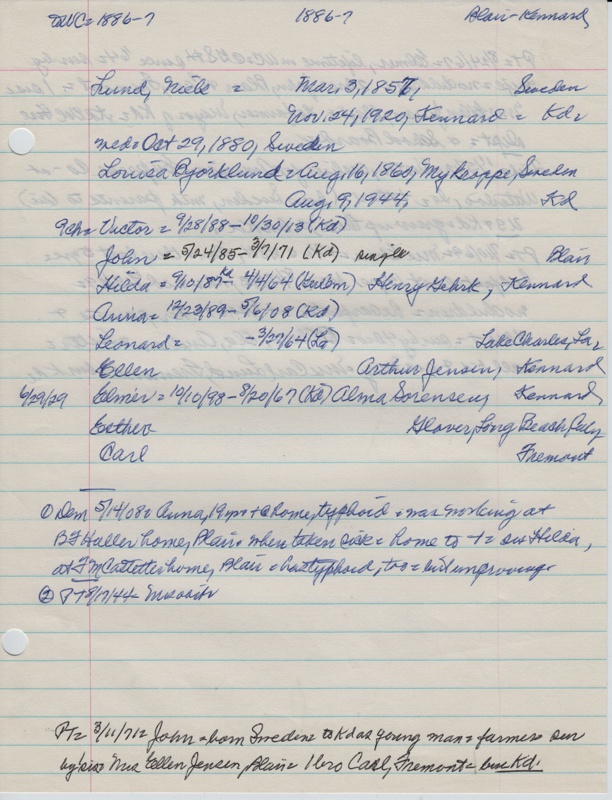 WC = 1886-7 1886-7 Blair - Kennard
Lund, Niels = Mar. 3, 1857, Sweden
Nov. 24, 1920, Kennard = Kd =
med = Oct 29, 1880, Sweden
Louisa Bjorklund = Aug. 16, 1860, Sweden
Aug. 9, 1944, Kd
9ch = Victor = 9/28/88 - 10/30/13 (Kd)
John = 5/24/85 - 3/7/71 (Kd) single Blair
Hilda = 9/10/87 - 4/4/64 Henry Gehrk, Kennard
Anna = 12/23/89 - 5/6/08 (Kd)
Leonard = - 3/27/64 (La) Lake Charles, La,
Ellen Arthur Jensen, Kennard
6/29/29 Elmer = 10/10/98 - 8/20/67 (Kd) Alma Sorensen, Kennard
Esther Glover, Long Beach,
Carl Fremont
① Dem 5/14/08 = Anna, 19 yrs + @ home, typhoid = was working at
B F Haller home, Blair = when taken sick = home to + = sis Hilda,
at home, Blair = has typhoid, too = but improving.
② PT 8/17/44 -
PT = 3/11/71 = John = born Sweden = to Kd as young man = farmer = sur
by sis = Mrs Ellen Jensen, Blair = 1 bro Carl, Fremont = bur Kd.